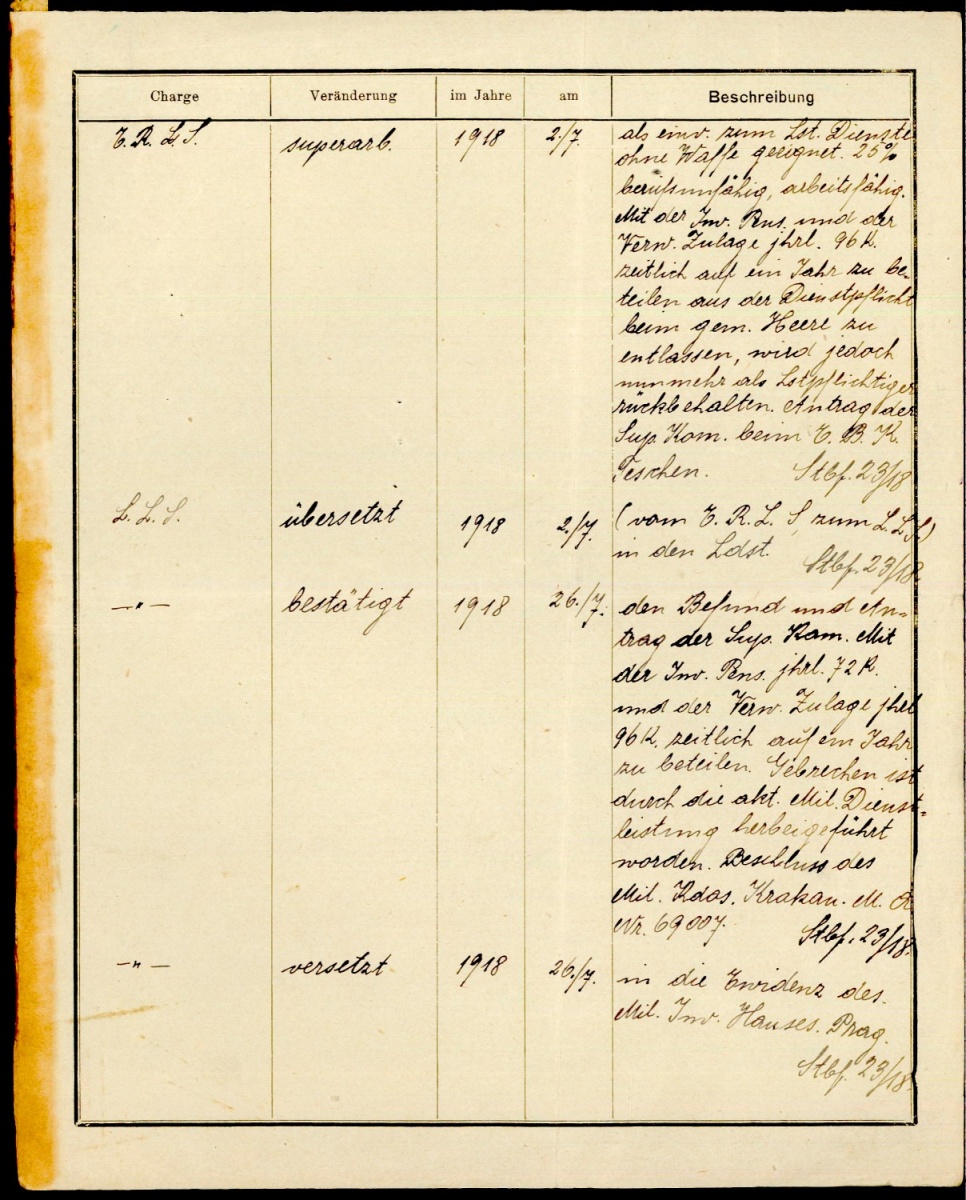 Charge Veränderung im Jahre am Beschreibung
E. R. L. S. superarb. 1918 2./7. als inv. zum Lst. Dienste
ohne Waffe geeignet. 25%
berufsunfähig, arbeitsfähig.
Mit der Inv. Pns. und der
Verw. Zulage jhrl. 96 K.
zeitlich auf ein Jahr zu be-
teilen aus der Dienstpflicht
beim gem. Heere zu
entlassen, wird jedoch
nunmehr als Lstpflichtiger
rückbehalten. Antrag der
Sup. Kom. beim E. B. K.
Teschen. Stbf. 23/18
L. L. S. übersetzt 1918 2./7. (vom E. R. L. S, zum L. L. S.)
in den Ldst.
Stbf. 23/18.
—"— bestätigt 1918 26./7. den Befund und An-
trag der Sup. Kom. Mit
der Inv. Pns. jhrl. 72 K.
und der Verw. Zulage jhrl
96 K. zeitlich auf ein Jahr
zu beteilen. Gebrechen ist
durch die akt. Mil. Dienst-
leistung herbeigeführt
worden. Beschluss des
Mil. Kdos. Krakau. M. A
Nr. 69007. Stbf. 23/18.
—"— versetzt 1918 26./7. in die Evidenz des.
Mil. Inv. Hauses. Prag.
Stbf. 23/18.